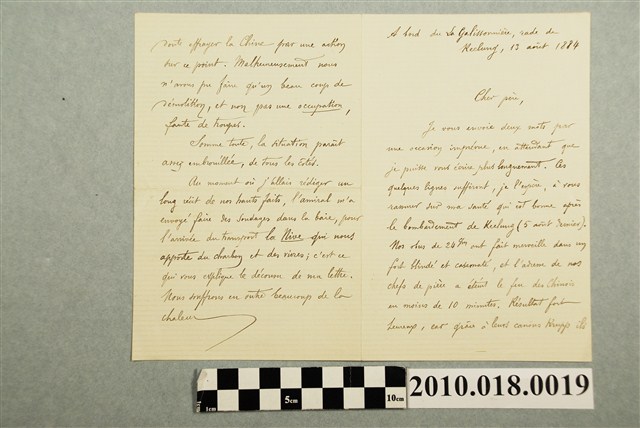 A bord du La Galissonnière, rade de
Keelung, 13 août 1884
Cher père,
Je vous envoie deux mots par
une occasion imprévue, en attendant que
je puisse vous écrire plus longuement. Ces
quelques lignes suffiront, je l'espère, à vous
rassurer sur ma santé qui est bonne après
le bombardement de Keelung (5 août dernier).
Nos obus de 24 ont fait merveille dans un
fort blindé et casematé, et l'adresse de nos
chefs de pièce a éteint le feu des Chinois
en moins de 10 minutes. Résultat fort
heureux, car grâce à leurs canons Krupp ils
effrayer la Chine par une action
sur ce point. Malheureusement nous
n'avons pu faire qu'un beau coup de
démolition, et non pas une occupation,
faute de troupes.
Somme toute, la situation paraît
assez embrouillée, de tous les côtés.
Au moment où j'allais rédiger un
long récit de nos hauts faits, l'amiral m'a
envoyé faire des sondages dans la baie, pour
l'arrivée du transport la Nive qui nous
apporte du charbon et des vivres; c'est ce
qui vous explique le décousu de ma lettre.
Nous souffrons en outre beaucoup de la
chaleur
1cm
5cm
10cm
2010.018.0019